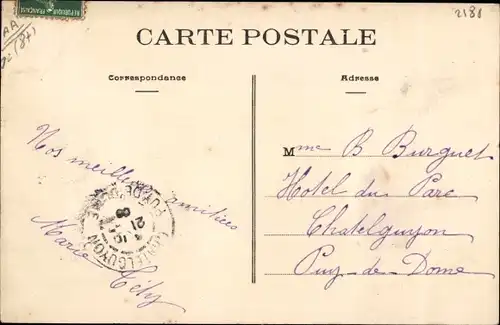 RÉPUBLIQUE FRANÇAISE
2181
CARTE POSTALE
Correspondance
Adresse
Nos meilleures amitiés
Marie
Mme B Burguet
Hotel du Parc
Chatelguyon
Puy-de-Dome
CHATELGUYON
PUY DE DOME
21
8